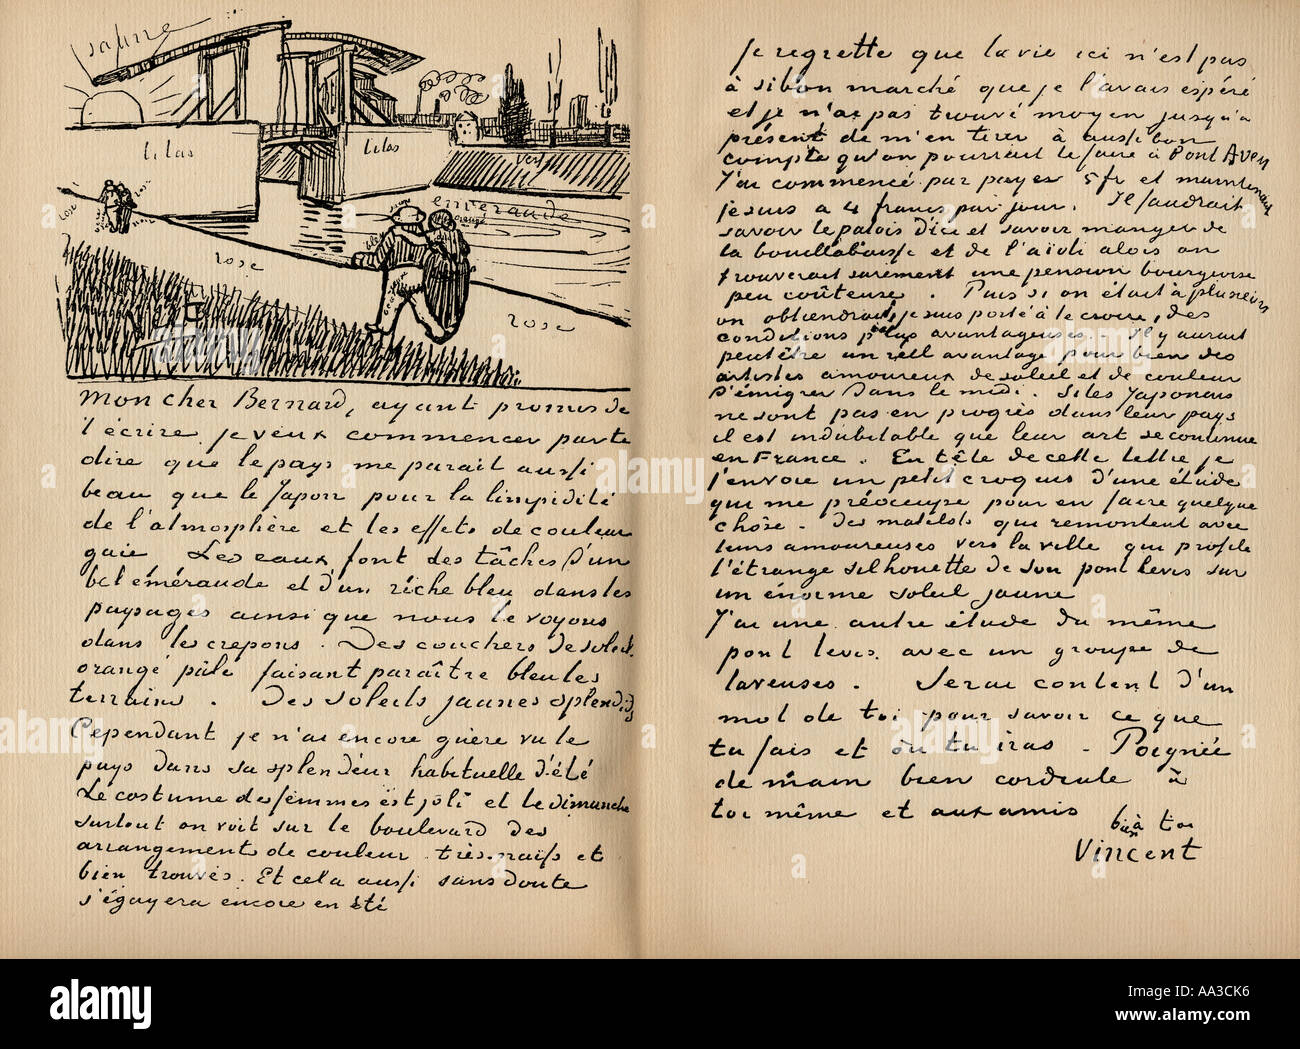 jaune
lilas
lilas
vert
rose
emeraude
orangé
rose
rose
Mon cher Bernard, ayant promis de
t'écrire je veux commencer par te
dire que le pays me parait aussi
beau que le Japon pour la limpidité
de l'atmosphère et les effets de couleur
gaie Les eaux font des tâches d'un
bel eméraude et d'un riche bleu dans les
paysages ainsi que nous le voyons
dans les crepons. Des couchers de soleil
orangé pâle faisant paraître bleu les
terrains. Des soleils jaunes splendides
Cependant je n'ai encore guère vu le
pays dans sa splendeur habituelle d'été
Le costume des femmes est joli et le dimanche
surtout on voit sur le boulevard des
arrangements de couleur très naïfs et
bien trouvés. Et cela aussi sans doute
s'égayera encore en été
Je regrette que la vie ici n'est pas
à si bon marché que je l'avais espéré
et je n'ai pas trouvé moyen jusqu'à
présent de m'en tirer à aussi bon
compte qu'on pourrait le faire à Pont Aven
J'ai commencé par payer 5 fr et maintenant
je suis a 4 francs par jour. Il faudrait
savoir le patois d'ici et savoir manger de
la bouillabaisse et de l'aïoli alors on
trouverait surement une pension bourgeoise
peu coûteuse. Puis si on était à plusieurs
on obtiendrait, je suis porté à le croire, des
conditions plus avantageuses. Il y aurait
peut être un réel avantage pour bien des
artistes amoureux de soleil et de couleur
d'émigrer dans le midi. Si les Japonais
ne sont pas en progrès dans leur pays
il est indubitable que leur art se continue
en France. En tête de cette lettre je
t'envoie un petit croquis d'une étude
qui me préoccupe pour en faire quelque
chôse - Des matelots qui remontent avec
leurs amoureuses vers la ville qui profile
l'étrange silhouette de son pont levis sur
un énorme soleil jaune
J'ai une autre étude du même
pont levis avec un groupe de
laveuses. Serai content d'un
mot de toi pour savoir ce que
tu fais et où tu iras - Poignée
de main bien cordiale à
toi même et aux amis
bien à toi
Vincent
alamy
Image ID: AA3CK6
www.alamy.com